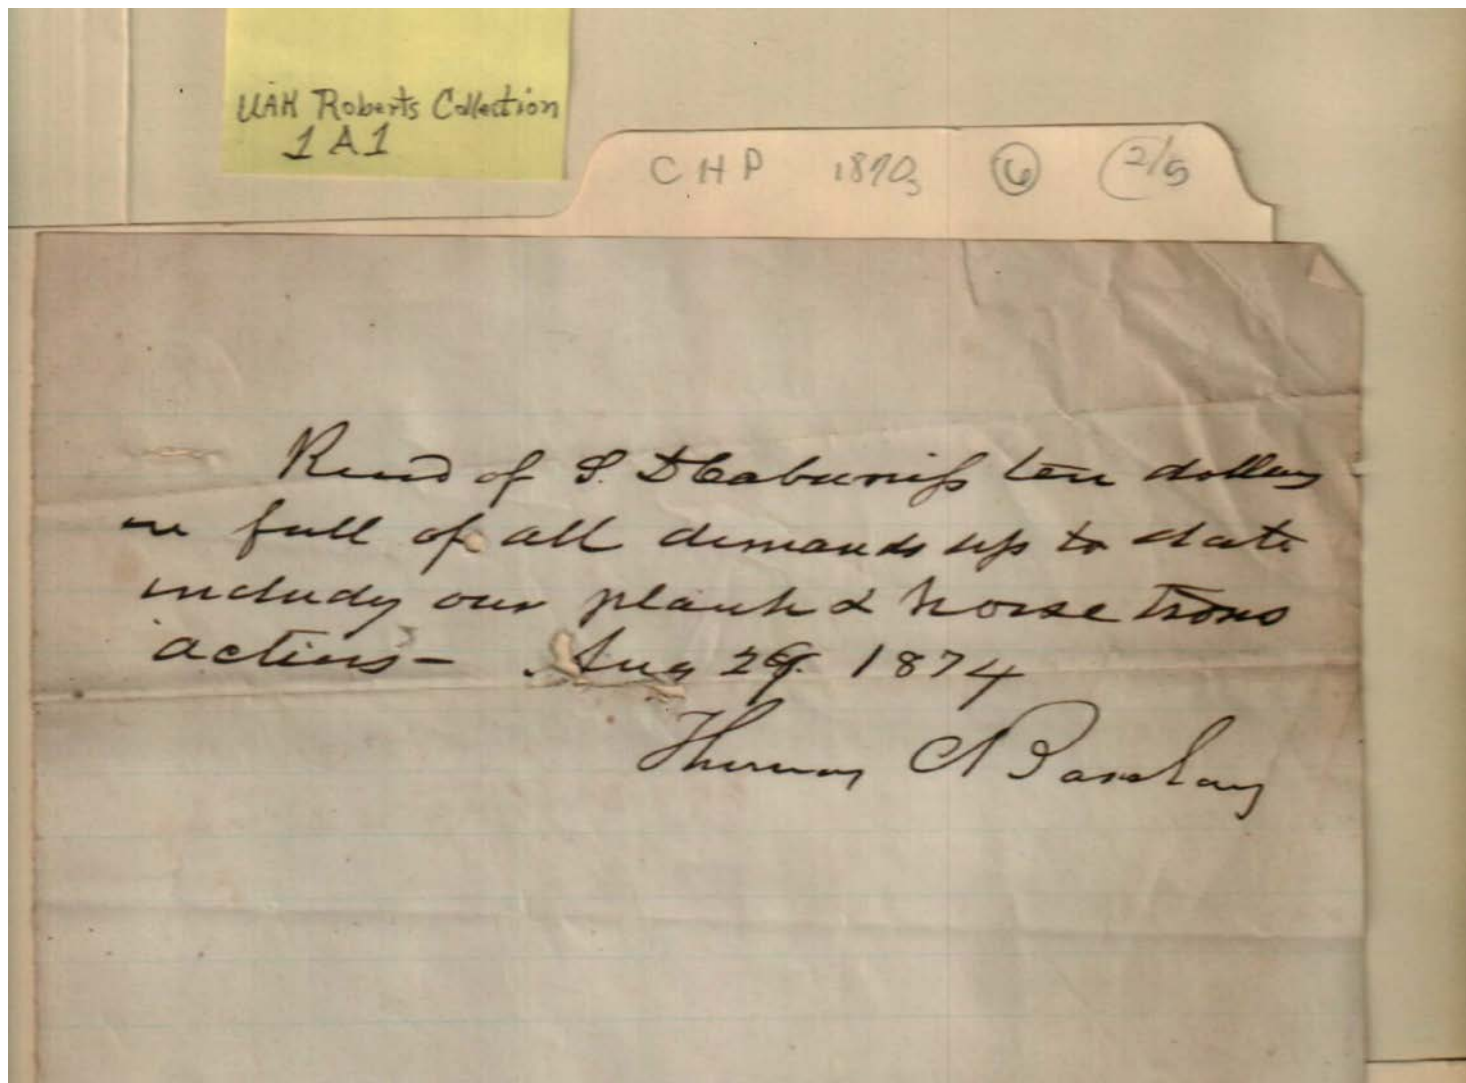 UAH Roberts Collection
1A1
CHP 1870s 6 2/5
Recd of S. D Cabaniss ten dollars
in full of all demands up to date
includg our plank & horse trans
actions - Aug 29. 1874
Thomas A Barclay